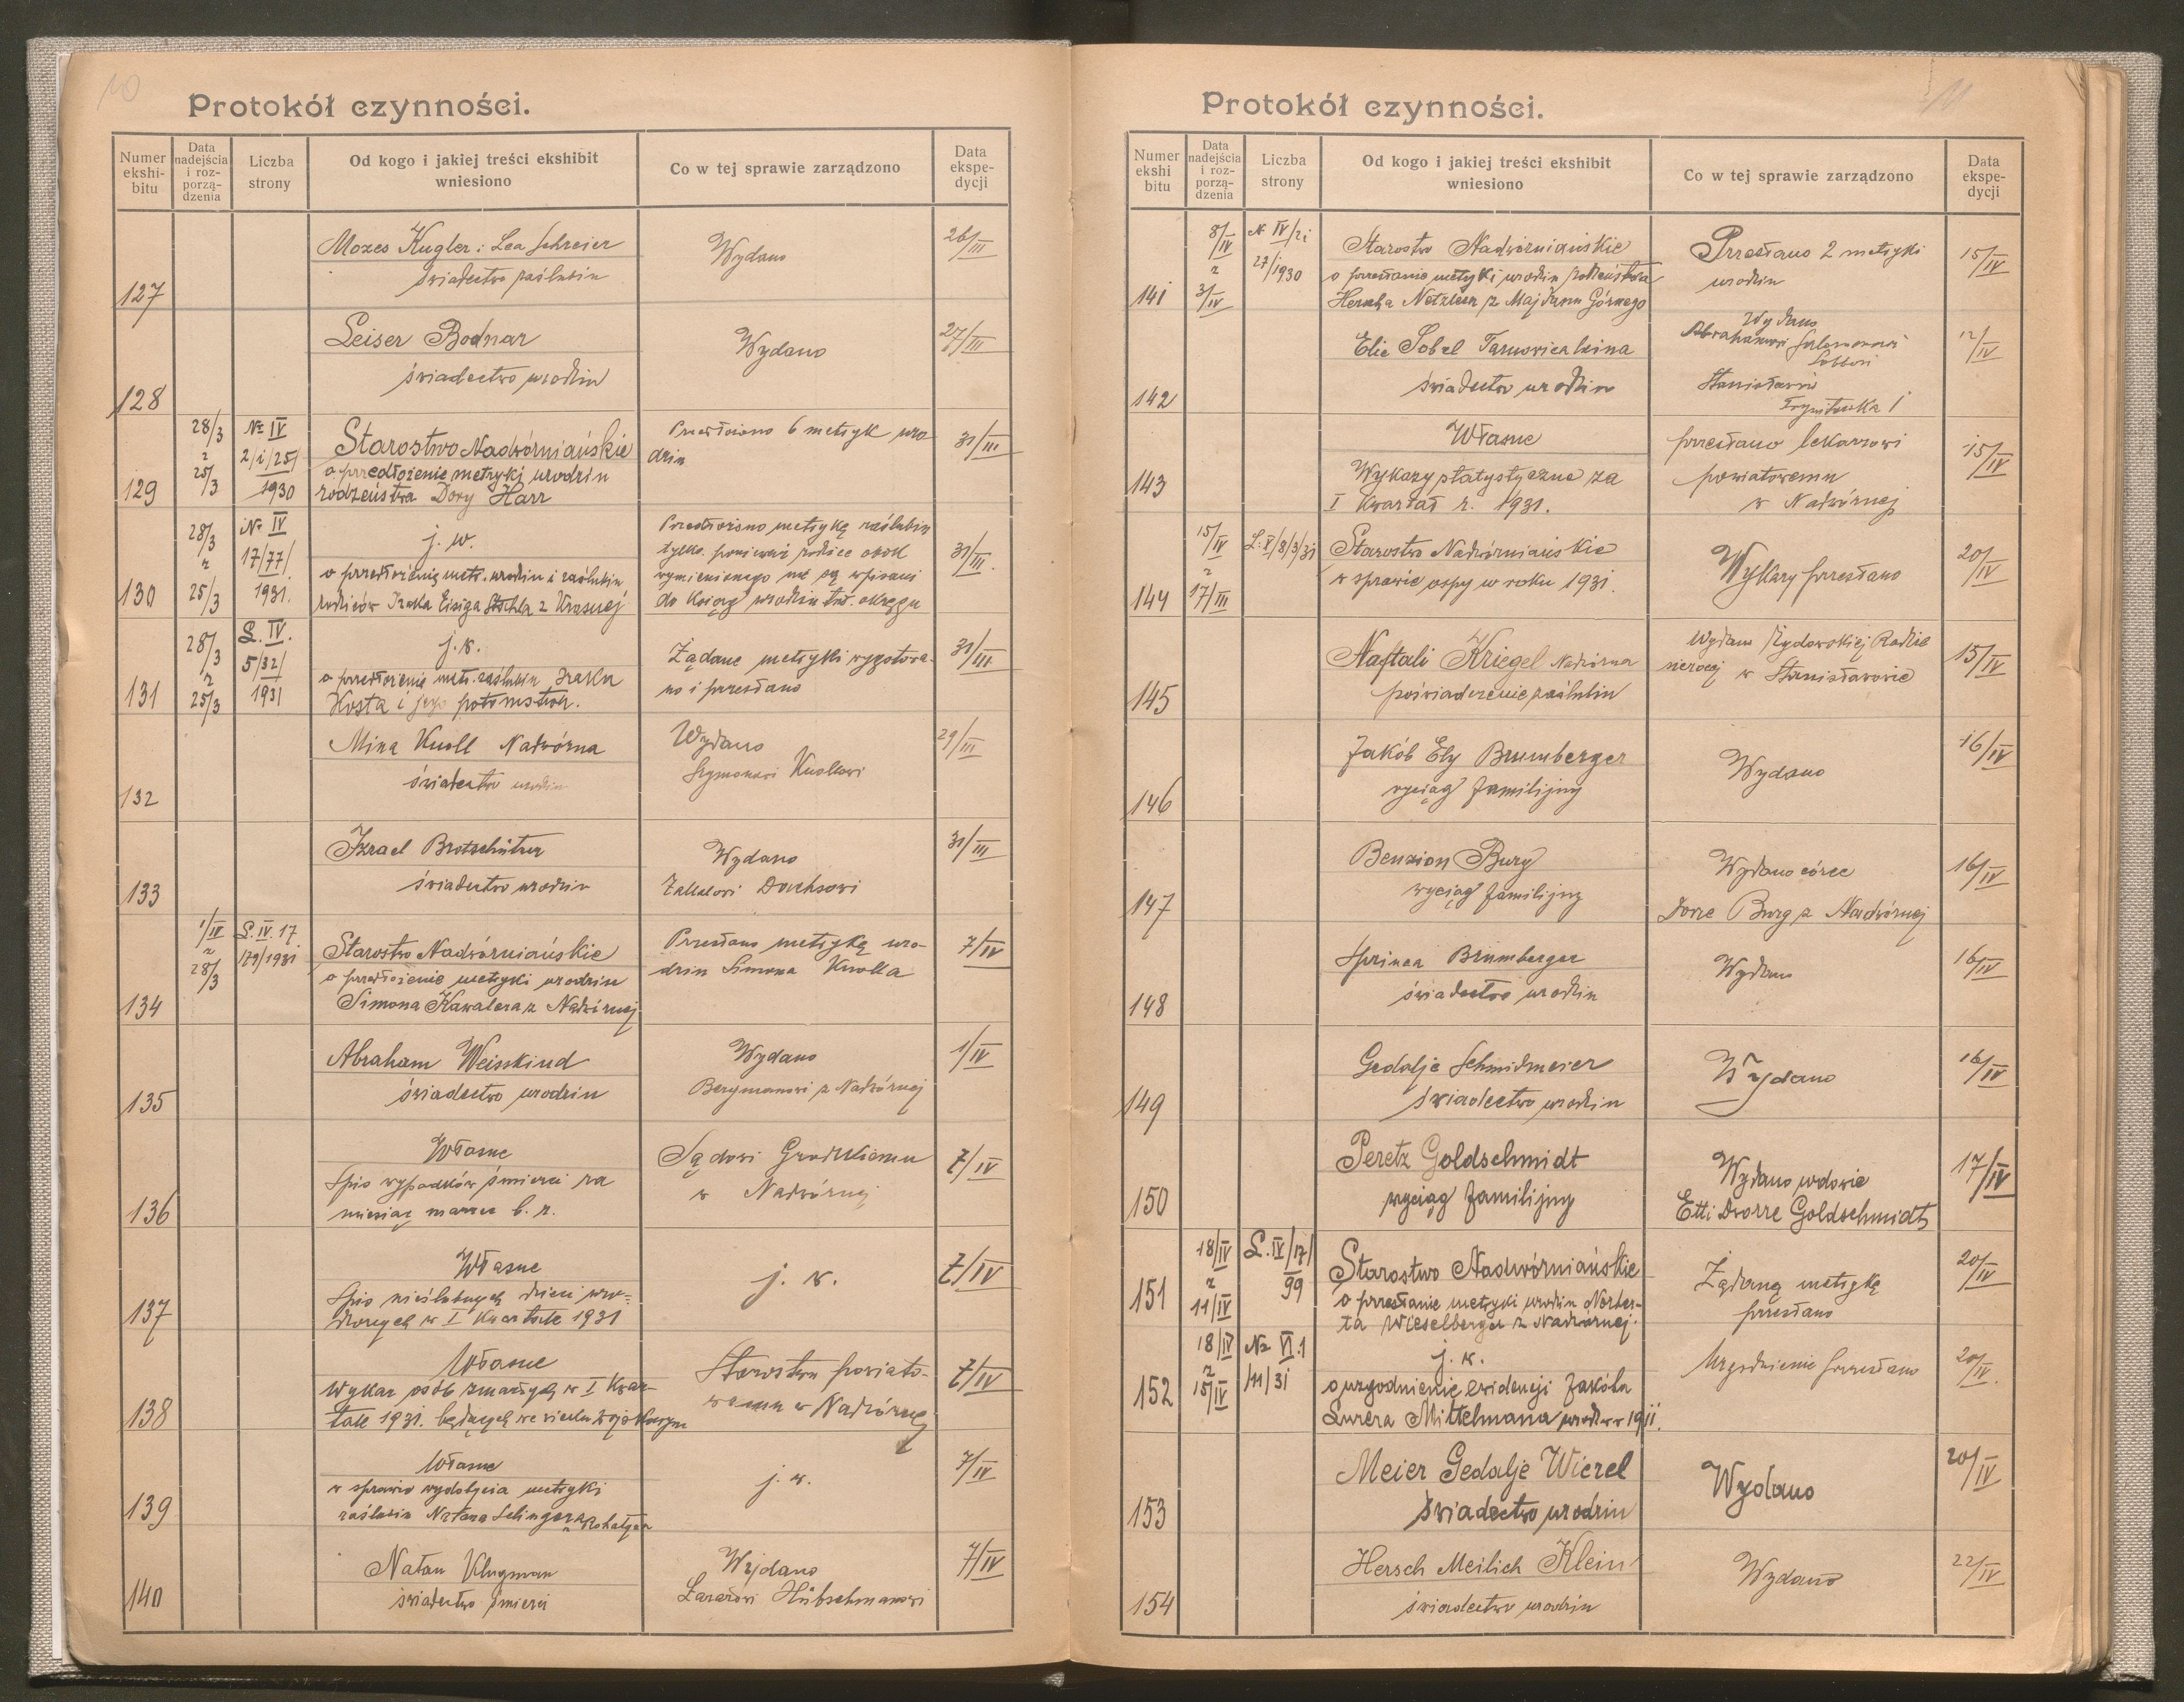 10
Protokół czynności.
Numer ekshi- bitu
Data nadejścia i roz- porzą- dzenia
Liczba strony
Od kogo i jakiej treści ekshibit wniesiono
Co w tej sprawie zarządzono
Data ekspe- dycji
127 Mozes Kugler i Lea Schreier Wydano 26/III
świadectwo zaślubin
128 Leiser Bodnar Wydano 27/III
świadectwo urodzin
129 28/3 z 25/3 № IV 2/i/25/ 1930
Starostwo Nadwórniańskie
o przedłożenie metryki urodzin
rodzeństwa Dory Harr
Przedłożono 6 metryk uro
dzin
31/III
130 28/3 z 25/3 № IV 17/77/ 1931.
j. w.
o przedłożenie metr. urodzin i zaślubin
rodziców Izaka Eisiga z Krasnej
Przedłożono metrykę zaślubin
tylko, ponieważ rodzice obok
wymienionego nie są wpisani
do ksiąg urodzin tut. okręgu
31/III.
131 28/3 z 25/3 L. IV. 5/32/ 1931
j. w.
o przedłożenie metr. zaślubin Izaka
Kosta i jego potomstwa.
Żądane metryki wygotowa-
no i przesłano
31/III
132 Mina Knoll Nadwórna
świadectwo urodzin
Wydano
Szymonowi Knollowi
29/III
133 Izrael Brotschützer
świadectwo urodzin
Wydano
31/III
134 1/IV z 28/3 L. IV. 17 179/1931
Starostwo Nadwórniańskie
o przedłożenie metryki urodzin
Simona Kawalera z Nadwórnej
Przesłano metrykę uro-
dzin Simona Knolla
7/IV
135 Abraham Weisskind
świadectwo urodzin
Wydano
Bergmanowi z Nadwórnej
1/IV
136 Własne
Spis wypadków śmierci za
miesiąc marzec b. r.
Sądowi Grodzkiemu
w Nadwórnej
7/IV
137 Własne
Spis nieślubnych dzieci uro-
dzonych w I Kwartale 1931
j. w.
7/IV
138 Własne
Wykaz osób zmarłych w I Kwar-
tale 1931. będących we wieku wojskowym
Starostwu powiato-
wemu w Nadwórnej
7/IV
139 Własne
w sprawie wydobycia metryki
zaślubin Natana Selingera z Rohatyna
j. w.
7/IV
140 Natan Klugman
świadectwo śmierci
Wydano
Lazarowi Hübschmanowi
7/IV
11
Protokół czynności.
Numer ekshi bitu
Data nadejścia i roz- porzą- dzenia
Liczba strony
Od kogo i jakiej treści ekshibit wniesiono
Co w tej sprawie zarządzono
Data ekspe- dycji
141 8/IV z 3/IV № IV/2i 27/1930
Starostwo Nadwórniańskie
o przesłanie metryki urodzin rodzeństwa
Herscha Netzlera z Majdanu Górnego
Przesłano 2 metryki
urodzin
15/IV
142 Elie Sobel
świadectwo urodzin
Wydano
Abrahamowi Salomonowi
Soblowi
Stanisławów
12/IV
143 Własne
Wykazy statystyczne za
I Kwartał r. 1931.
przesłano lekarzowi
powiatowemu
w Nadwórnej
15/IV
144 15/IV z 17/III L: V/8/3/31
Starostwo Nadwórniańskie
w sprawie ospy w roku 1931.
Wykazy przesłano
20/IV
145 Naftali Kriegel Nadwórna
poświadczenie zaślubin
Wydano Żydowskiej Radzie
sierocej w Stanisławowie
15/IV
146 Jakób Ely Brumberger
wyciąg familijny
Wydano
16/IV
147 Benzion Burg
wyciąg familijny
Wydano córce
Dorze Burg z Nadwórnej
16/IV
148 Sprinca Brumberger
świadectwo urodzin
Wydano
16/IV
149 Gedalje Schmidmeier
świadectwo urodzin
Wydano
16/IV
150 Peretz Goldschmidt
wyciąg familijny
Wydano wdowie
Etti Dworze Goldschmidt
17/IV
151 18/IV z 11/IV L. IV/17/ 99
Starostwo Nadwórniańskie
o przesłanie metryki urodzin Norber-
ta Wieselberger z Nadwórnej.
Żądaną metrykę
przesłano
20/IV
152 18/IV z 15/IV № VI.1 /11/31
j. w.
o uzgodnienie ewidencji Jakóba
Lurera Mittelmana urodz. w 1911.
Uzgodnienie przesłano
20/IV.
153 Meier Gedalje Wierel
świadectwo urodzin
Wydano
20/IV
154 Hersch Meilich Klein
świadectwo urodzin
Wydano
22/IV